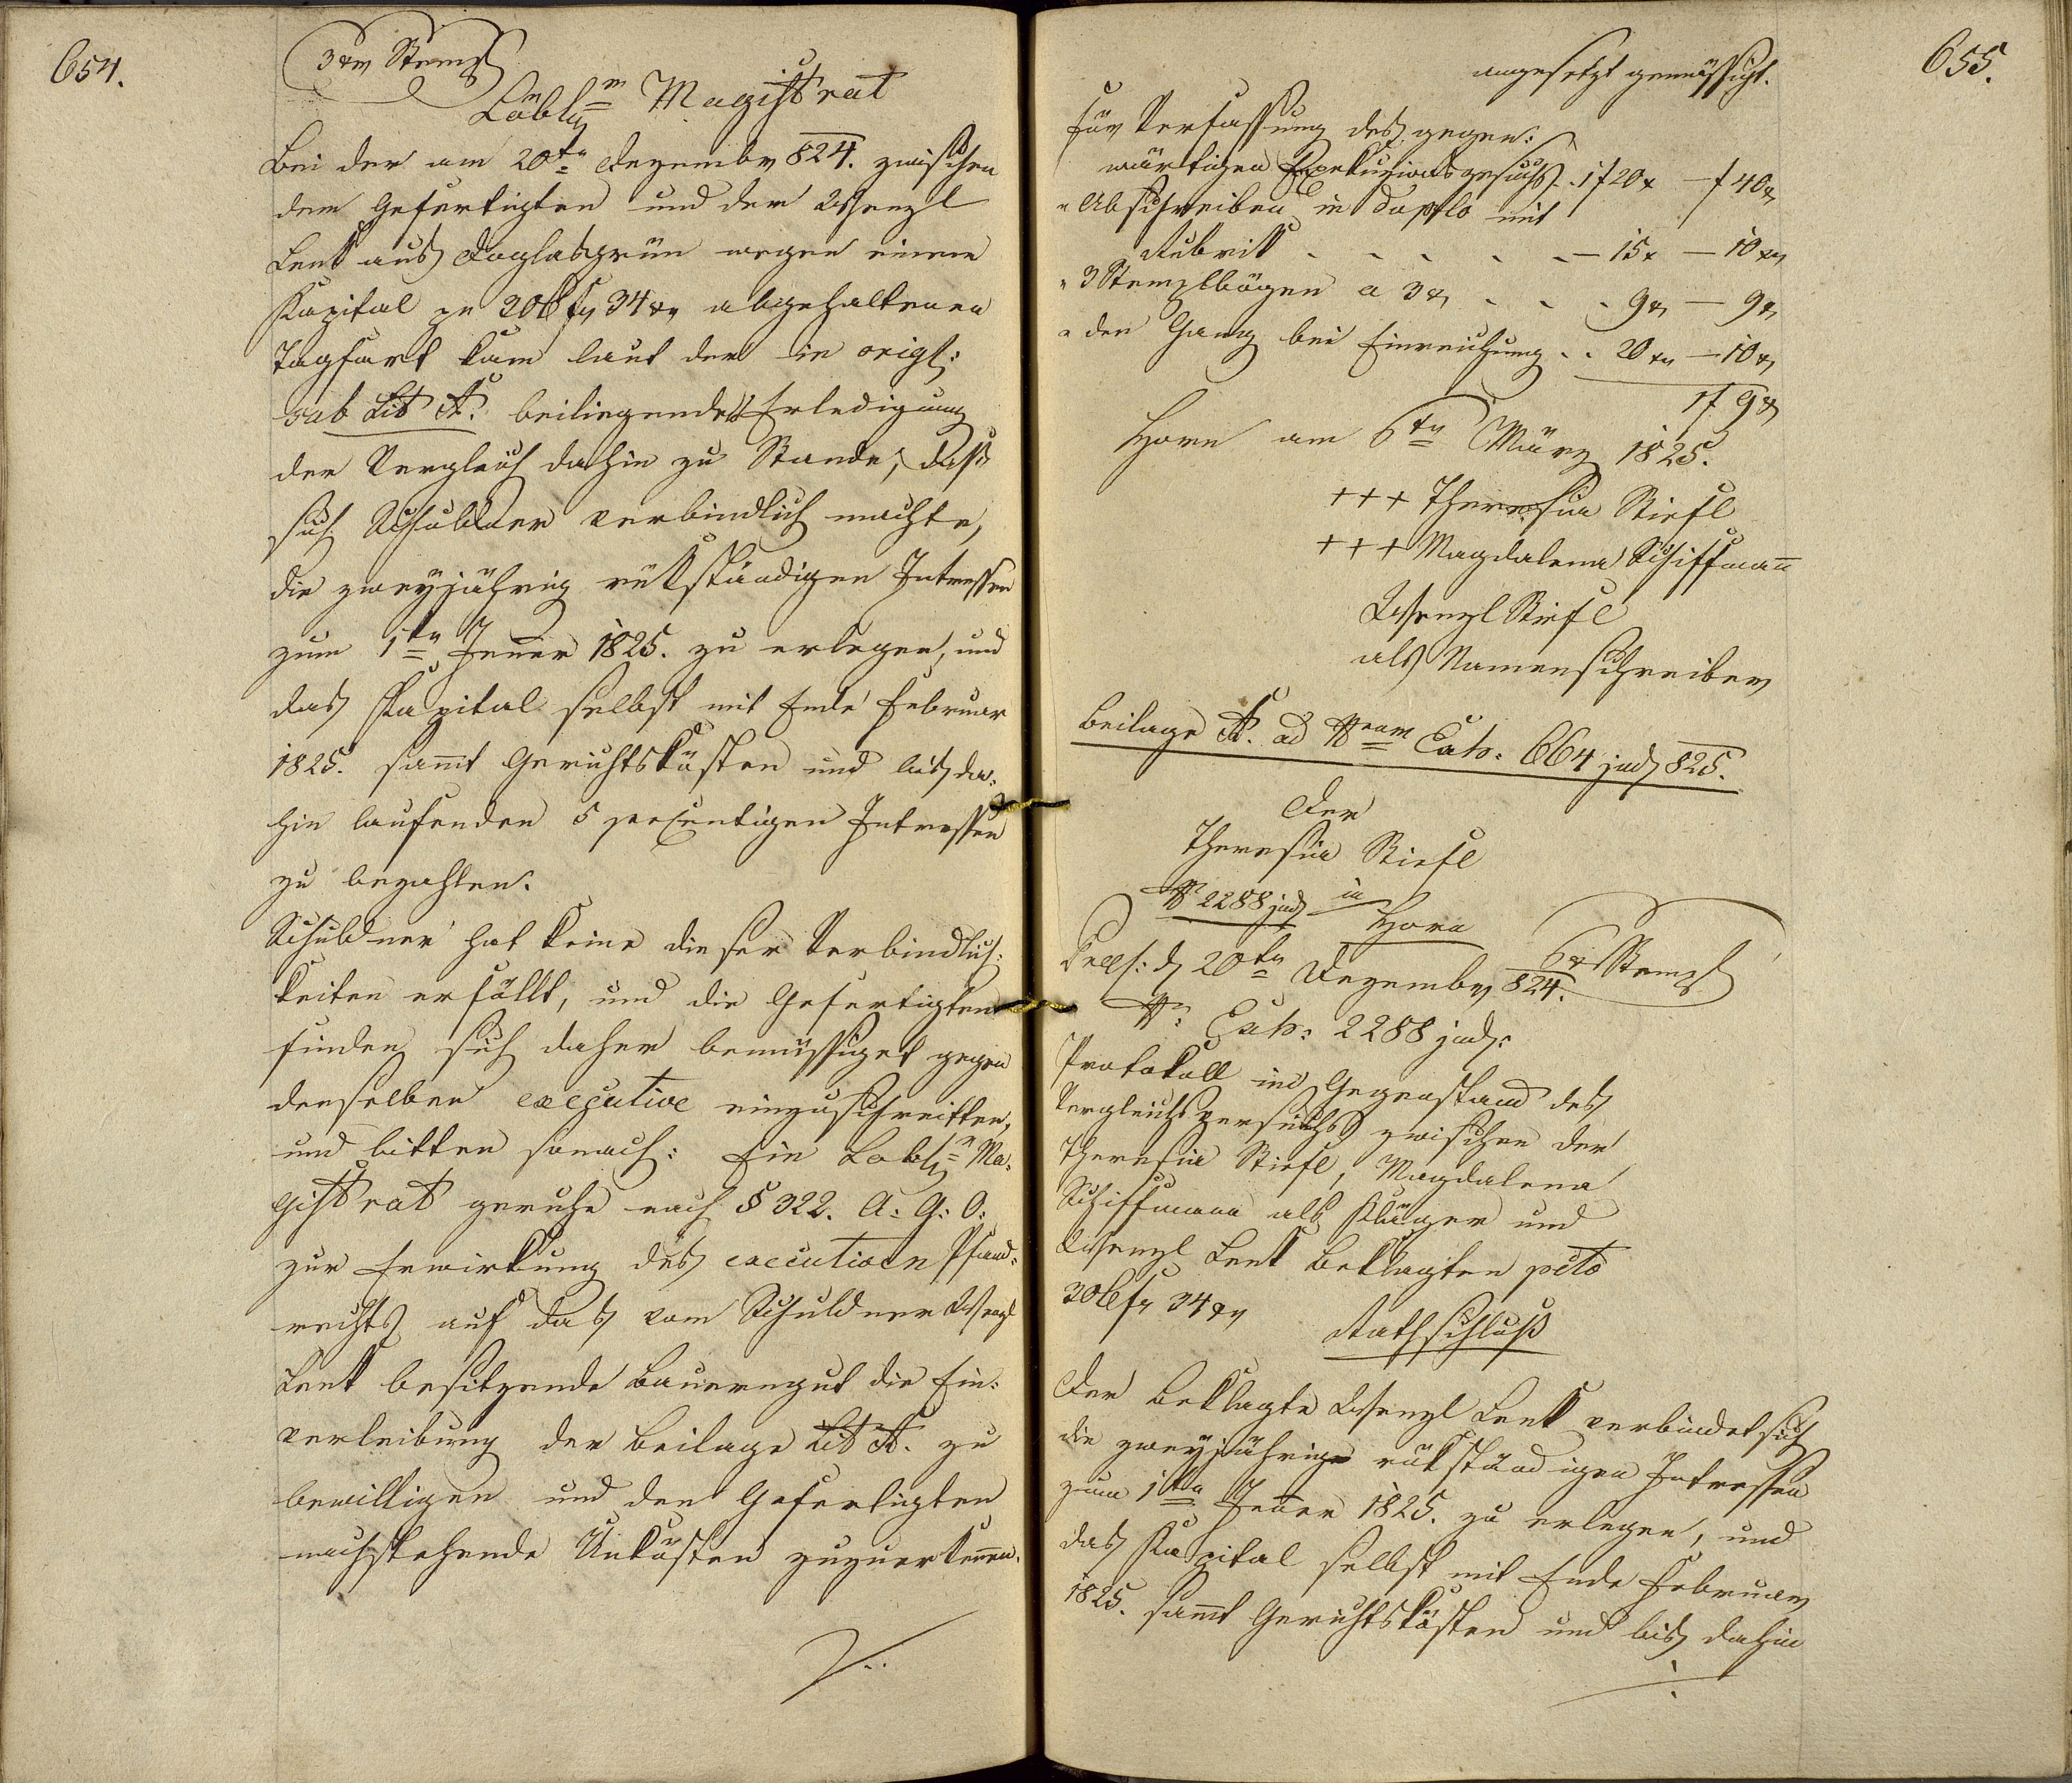 654.
3 xr Stempl
Löbln Magistrat
Bei der am 20tn Dezembr 824. zwischen
dem Gefertigten und der Wenzl
Lenk aus Doglasgrün wegen einem
Kapital pr 206 fr 34 xr abgehaltenen
Tagfart kam laut der in origl:
sub Lit A. beiliegender Erledigung
der Vergleich dahin zu Stande, daß
sich Schuldner verbindlich machte,
die zweÿjährig rükständigen Intressen
zum 1tn Jener 1825. zu erlegen, und
das Kapital selbst mit Ende Februar
1825. sam̄t Gerichtskösten und bis da:
hin laufenden 5 percentigen Intressen
zu bezahlen.
Schuldner hat keine dieser Verbindlich:
keiten erfüllt, und die Gefertigten
finden sich daher bemüssiget gegen
denselben executive einzuschreitten,
und bitten sonach: Ein Löbln Ma:
gistrat geruhe nach § 322. A: G: O:
zur Erwirkung des executiven Pfand:
rechts auf das vom Schuldner Wenzl
Lenk besitzende Bauerngut die Ein:
verleibung der Beilage Lit A. zu
bewilligen und den Gefertigten
nachstehende Unkösten zuzuerkennen.
655.
angesetzt gemässigt.
Für Verfassung des gegen:
wärtigen Exekuzionsgesuchs . 1 f 20 x — f 40 xr
" Abschreiben in duplo mit
Rubrik - - - - - — 15 x — 10 xr
" 3 Stemplbögen a 3 xr - - - 9 xr — 9 xr
" den Gang bei Einreichung . . 20 xr — 10 xr
1 f 9 xr
Horn am 6tn März 1825.
+++ Theresia Stiefl
+++ Magdalena Schiffman̄
Wenzl Stiefl
als Namenschreiber
Beilage A. ad Nrum Exh: 664 jud 825.
Der
Theresia Stiefl
N 2288 jud in
Horn
6 xr Stempl
Præs: d 20tn Dezembr 824.
N: Exh: 2288 jud:
Protokoll in Gegenstand des
Vergleichsversuchs zwischen der
Theresia Stiefl, Magdalena
Schiffmann als Kläger und
Wenzl Lenk Beklagten pcto
206 fr 34 xr
Rathschluß
Der Beklagte Wenzl Lenk verbindet sich
die zweÿjährige rükständigen Intressen
zum 1tn Jener 1825. zu erlegen, und
das Kapital selbst mit Ende Februar
1825. sam̄t Gerichtskösten und bis dahin